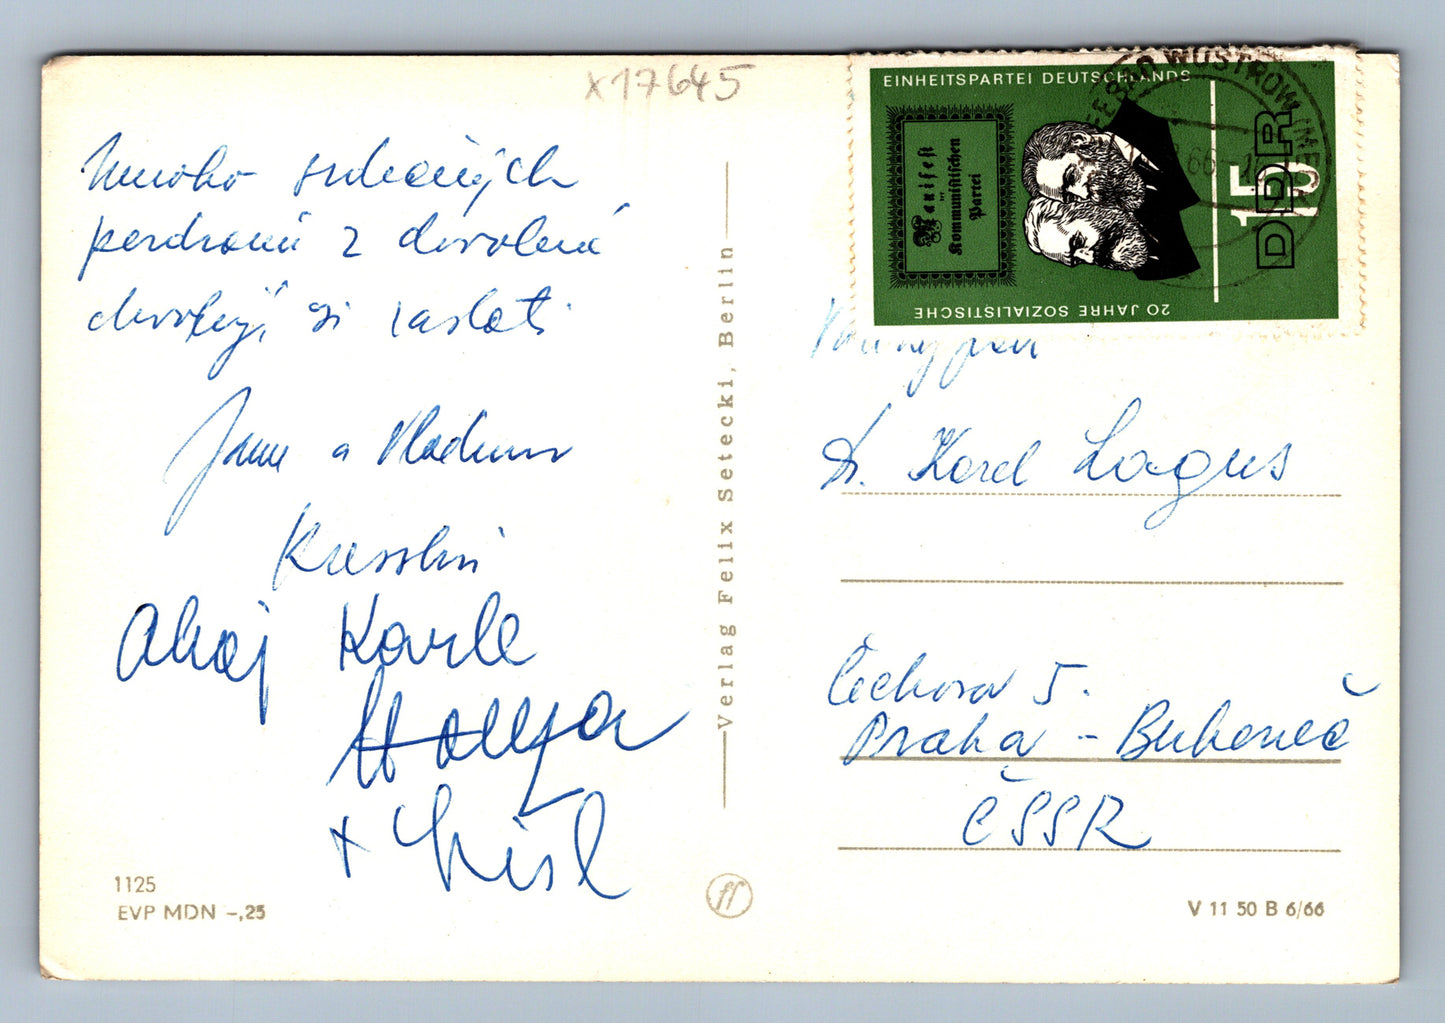 x17645
Mnoho srdečných
pozdravů z dovolené
dovolují si zaslati
Jana a Vladimír
Ahoj Karle
+ Lisl
1125
EVP MDN -,25
Verlag Felix Setecki, Berlin
ff
EINHEITSPARTEI DEUTSCHLANDS
Manifest
der
Kommunistischen
Partei
20 JAHRE SOZIALISTISCHE
15
DDR
OSTSEEBAD WUSTROW (MECKL)
Vážený pan
Dr. Karel Lagus
Čechova 5.
Praha - Bubeneč
ČSSR
V 11 50 B 6/66